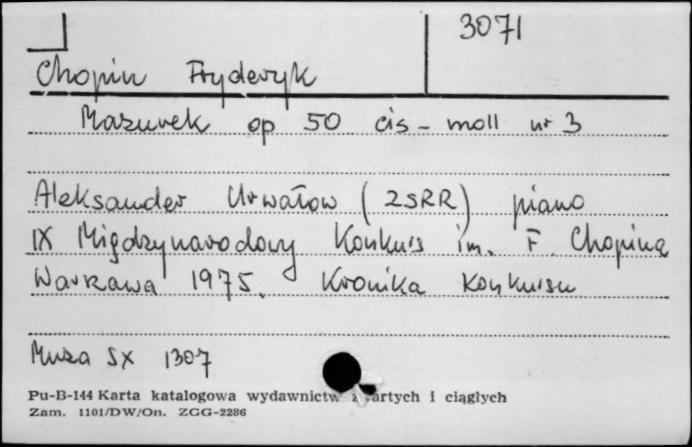 3071
Chopin Fryderyk
Mazurek op 50 cis-moll nr 3
Aleksander Urwałow (ZSRR) piano
IX Międzynarodowy Konkurs im. F. Chopina
Warszawa 1975. Kronika konkursu
Muza SX 1307
Pu-B-144 Karta katalogowa wydawnictw i ciągłych
Zam. 1101/DW/On. ZGG-2286